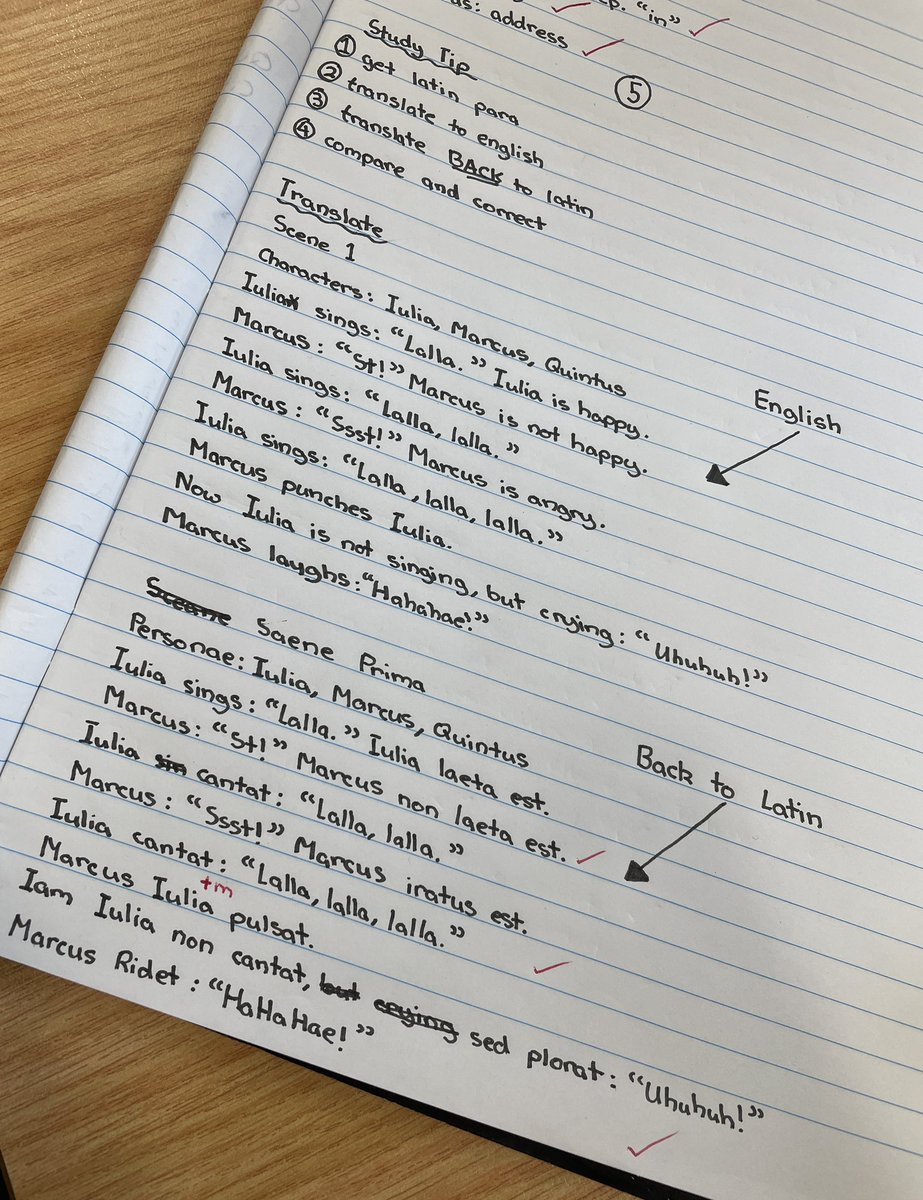 "in"
address
Study Tip
⑤
① get latin para
② translate to english
③ translate BACK to latin
④ compare and correct
Translate
Scene 1
Characters: Iulia, Marcus, Quintus
Iulia sings: "Lalla." Iulia is happy.
Marcus: "St!" Marcus is not happy.
Iulia sings: "Lalla, lalla."
Marcus: "Ssst!" Marcus is angry.
Iulia sings: "Lalla, lalla, lalla."
Marcus punches Iulia.
Now Iulia is not singing, but crying: "Uhuhuh!"
Marcus laughs: "Hahahae!"
English
Saene Prima
Personae: Iulia, Marcus, Quintus
Iulia sings: "Lalla." Iulia laeta est.
Marcus: "St!" Marcus non laeta est.
Iulia cantat: "Lalla, lalla."
Marcus: "Ssst!" Marcus iratus est.
Iulia cantat: "Lalla, lalla, lalla."
Marcus Iulia +m pulsat.
Iam Iulia non cantat, but crying sed plorat: "Uhuhuh!"
Marcus Ridet: "HaHaHae!"
Back to Latin